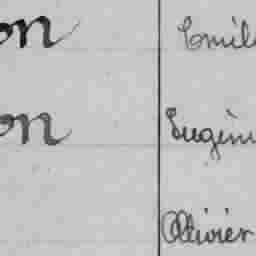 on Emile
on Eugène
Olivier